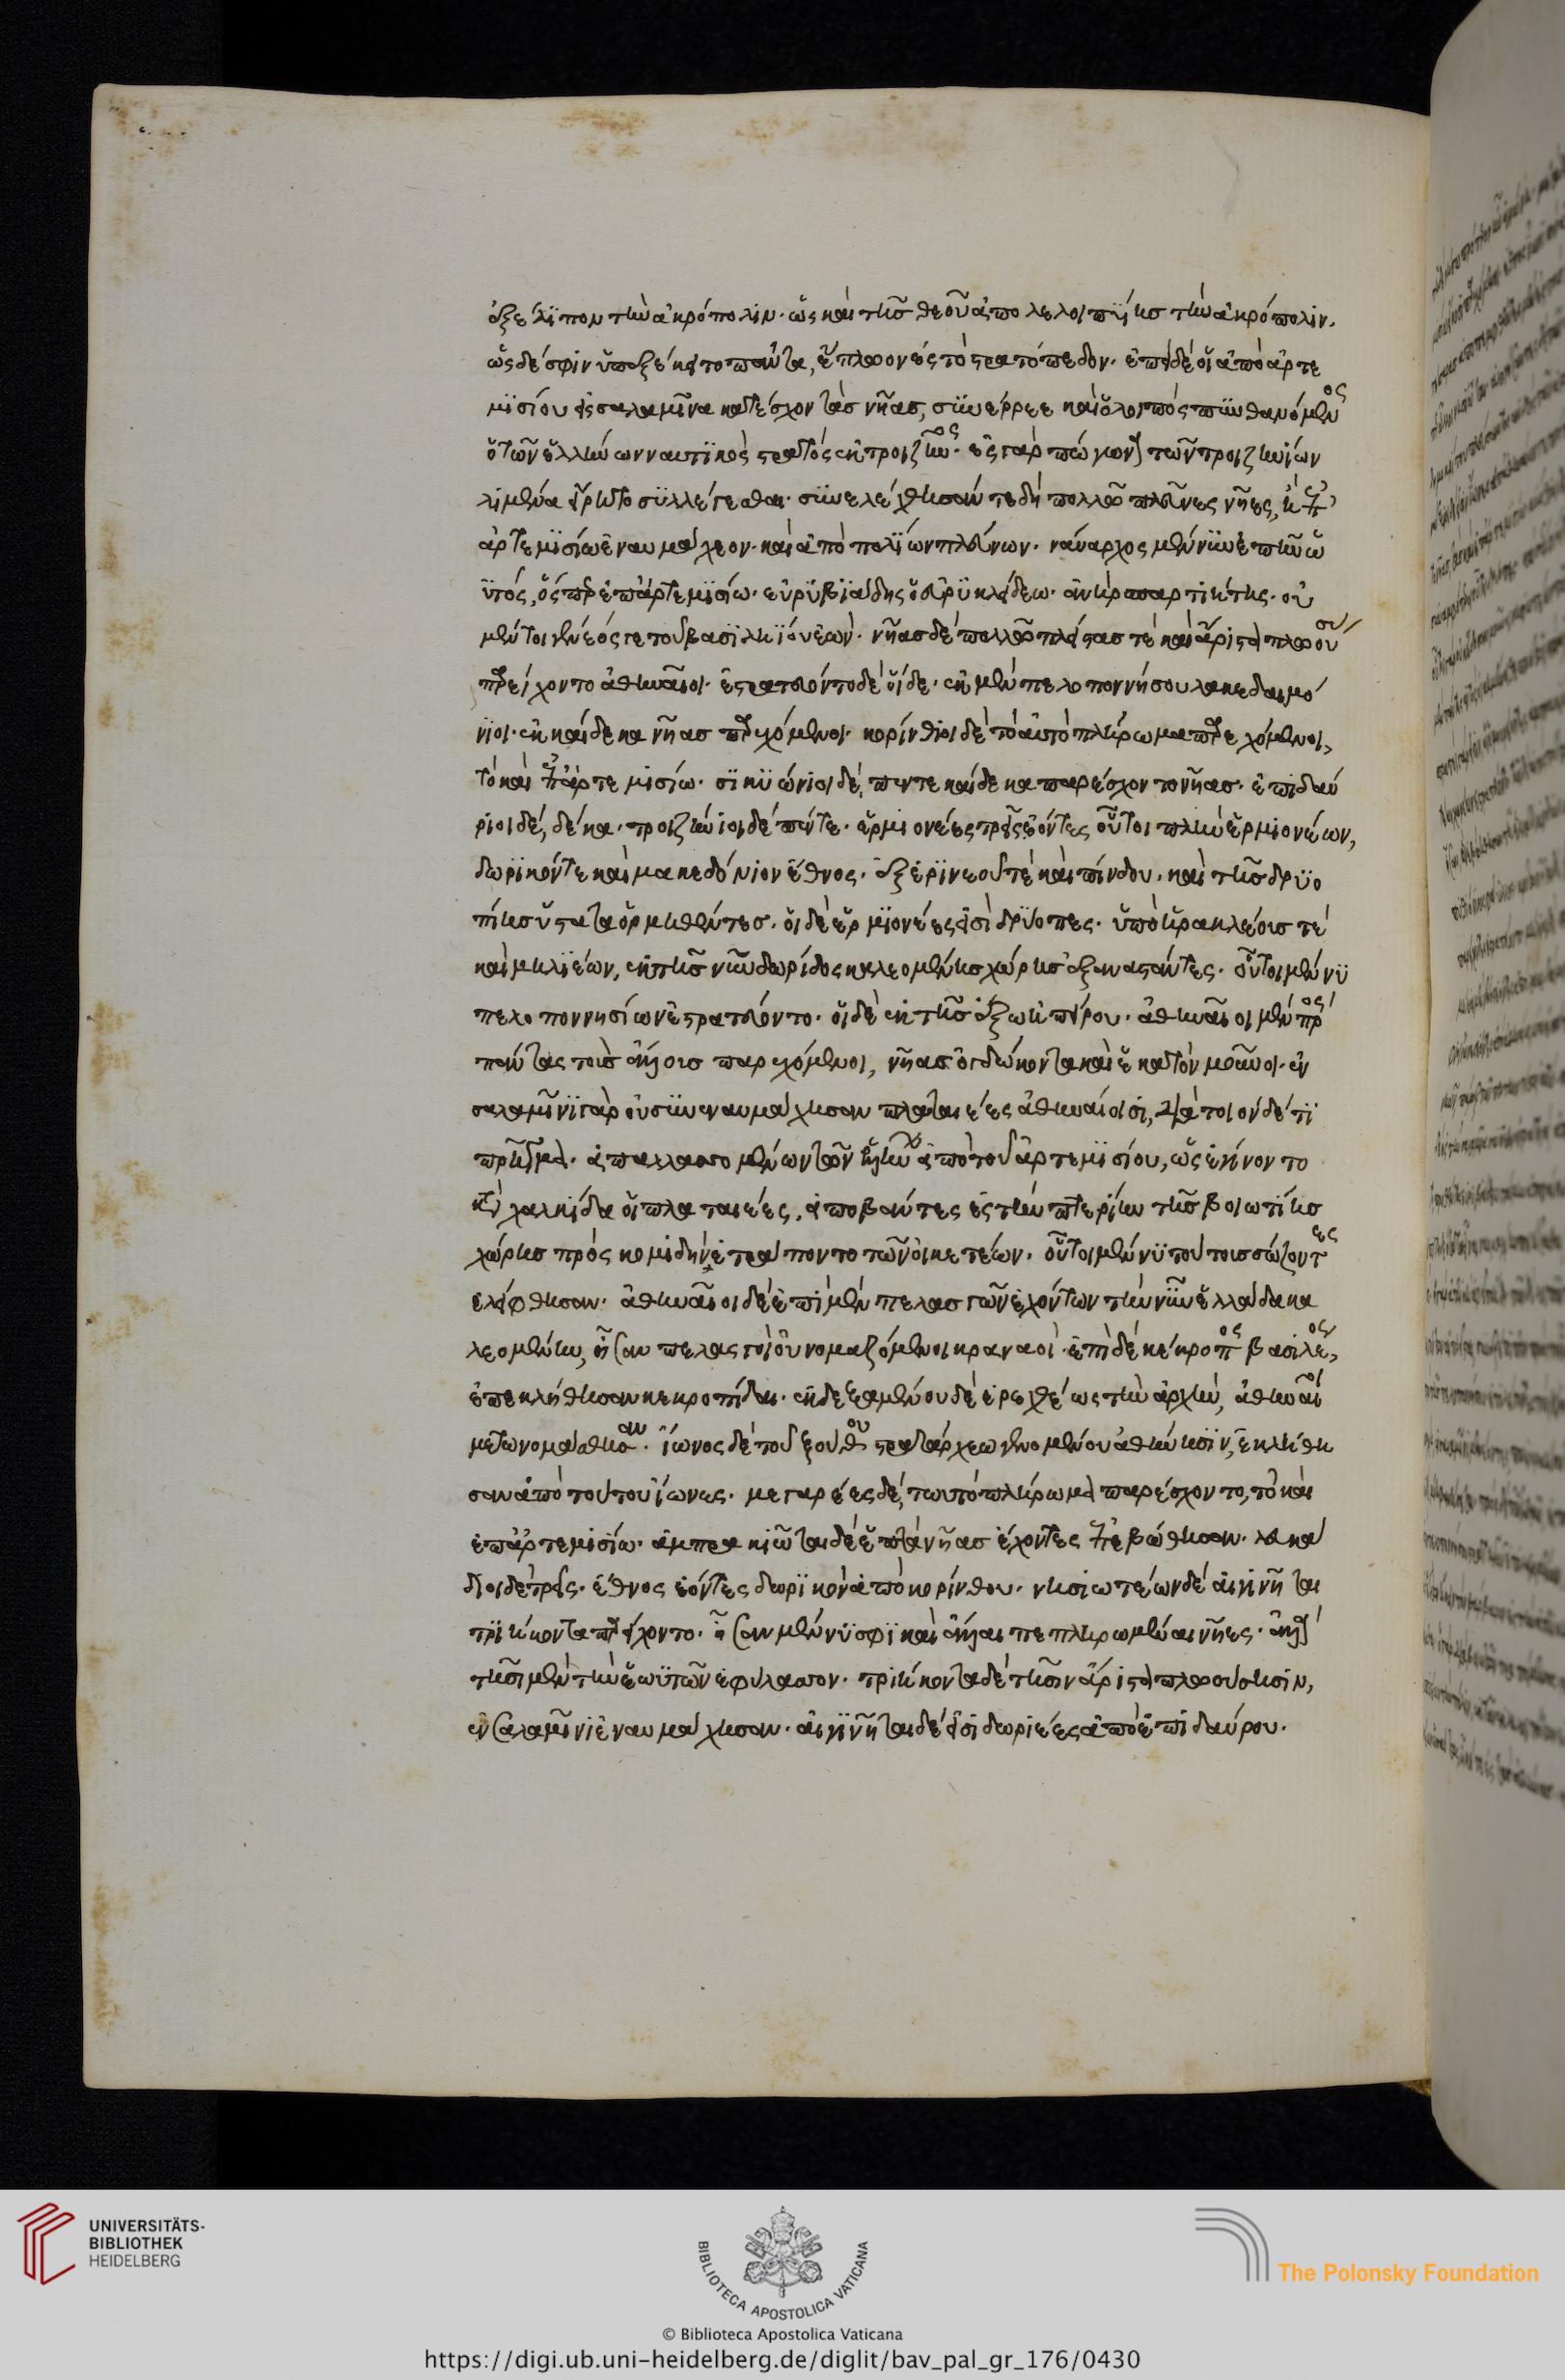 ἐξέλιπον τὴν ἀκρόπολιν. ὡς καὶ τῆς θεοῦ ἀπολελοιπυίης τὴν ἀκρόπολιν.
ὡς δέ σφιν ὑπεξέκειτο πάντα, ἔπλεον ἐς τὸ στρατόπεδον. ἐπεὶ δὲ οἱ ἀπὸ ἀρτε
μισίου εἰς σαλαμῖνα κατέσχον τὰς νῆας, συνέρρεε καὶ ὁ λοιπὸς πυνθανόμενος
ὁ τῶν ἑλλήνων ναυτικὸς στρατὸς ἐκ τροιζῆνος. ἐς γὰρ πώγωνα τῶν τροιζηνίων
λιμένα εἴρητο συλλέγεσθαι. συνελέχθησάν τε δὴ πολλῷ πλεῦνες νῆες, ἢ ἐπ᾽
ἀρτεμισίῳ ἐναυμάχεον. καὶ ἀπὸ πολίων πλεύνων. ναύαρχος μέν νυν ἐπῆν ὡ
υτὸς, ὅσπερ ἐπ᾽ ἀρτεμισίῳ. εὐρυβιάδης ὁ εὐρυκλείδεω. ἀνὴρ σπαρτιήτης. οὐ
μέντοι γένεός γε τοῦ βασιληίου ἐών. νῆας δὲ πολλῷ πλείστας τε καὶ ἄριστα πλεούσ
παρείχοντο ἀθηναῖοι. ἐστρατεύοντο δὲ οἵδε. ἐκ μὲν πελοποννήσου λακεδαιμό
νιοι. ἑκκαίδεκα νῆας παρεχόμενοι. κορίνθιοι δὲ τὸ αὐτὸ πλήρωμα παρεχόμενοι,
τὸ καὶ ἐπ᾽ ἀρτεμισίῳ. σικυώνιοι δέ, πεντεκαίδεκα παρέσχοντο νῆας. ἐπιδαύ
ριοι δέ, δέκα. τροιζήνιοι δὲ πέντε. ἑρμιονέες τρεῖς ἐόντες οὗτοι πλὴν ἑρμιονέων,
δωρικόν τε καὶ μακεδόνιον ἔθνος. ἐξ ἐρινεοῦ τὲ καὶ πίνδου. καὶ τῆς δρυο
πίης ὕστατα ὁρμηθέντες. οἱ δὲ ἑρμιονέες εἰσὶ δρύοπες. ὑπὸ ἡρακλέος τέ
καὶ μηλιέων, ἐκ τῆς νῦν δωρίδος καλεομένης χώρης ἐξαναστάντες. οὗτοι μέν νυ
πελοποννησίων ἐστρατεύοντο. οἱ δὲ ἐκ τῆς ἔξω ἠπείρου. ἀθηναῖοι μὲν πρὸς
πάντας τοὺς ἄλλους παρεχόμενοι, νῆας ὀγδώκοντα καὶ ἑκατὸν μοῦνοι. ἐν
σαλαμῖνι γὰρ οὐ συνεναυμάχησαν πλαταιέες ἀθηναίοισι, διὰ τοιόνδε τι
πρῆγμα. ἀπαλλασσομένων τῶν ἑλλήνων ἀπὸ τοῦ ἀρτεμισίου, ὡς ἐγίνοντο
κατὰ χαλκίδα οἱ πλαταιέες, ἀποβάντες ἐς τὴν περαίην τῆς βοιωτίης
χώρης πρὸς κομιδὴν ἐτράποντο τῶν οἰκετέων. οὗτοι μέν νυ τούτους σώζοντες
ἐλείφθησαν. ἀθηναῖοι δὲ ἐπὶ μὲν πελασγῶν ἐχόντων τὴν νῦν ἑλλάδα κα
λεομένην, ἦσαν πελασγοὶ οὐνομαζόμενοι κραναοί. ἐπὶ δὲ κέκροπος βασιλέος,
ἐπεκλήθησαν κεκροπίδαι. ἐκδεξαμένου δὲ ἐρεχθέως τὴν ἀρχήν, ἀθηναῖοι
μετωνομάσθησαν. ἴωνος δὲ τοῦ ξούθου στρατάρχεω γενομένου ἀθήνησιν, ἐκλήθη
σαν ἀπὸ τούτου ἴωνες. μεγαρέες δέ, τωυτὸ πλήρωμα παρέσχοντο, τὸ καὶ
ἐπ᾽ ἀρτεμισίῳ. ἀμπρακιῶται δὲ ἑπτὰ νῆας ἔχοντες ἐπεβώθησαν. λευκά
διοι δὲ τρεῖς. ἔθνος ἐόντες δωρικὸν ἀπὸ κορίνθου. νησιωτέων δὲ αἰγινῆται
τριήκοντα παρείχοντο. ἦσαν μέν νύ σφι καὶ ἄλλαι πεπληρωμέναι νῆες. ἀλλὰ
τῇσι μὲν τὴν ἑωυτῶν ἐφύλασσον. τριήκοντα δὲ τῇσιν ἄριστα πλεούσῃσιν,
ἐν σαλαμῖνι ἐναυμάχησαν. αἰγινῆται δέ εἰσι δωριέες ἀπὸ ἐπιδαύρου.
UNIVERSITÄTS-
BIBLIOTHEK
HEIDELBERG
BIBLIOTECA APOSTOLICA VATICANA
The Polonsky Foundation
© Biblioteca Apostolica Vaticana
https://digi.ub.uni-heidelberg.de/diglit/bav_pal_gr_176/0430